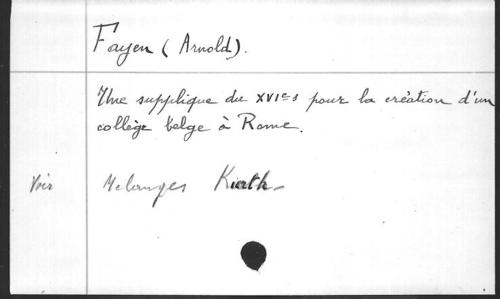 Fayen (Arnold).
Une supplique du XVIe s pour la création d'un
collège belge à Rome.
Voir Mélanges Kurth